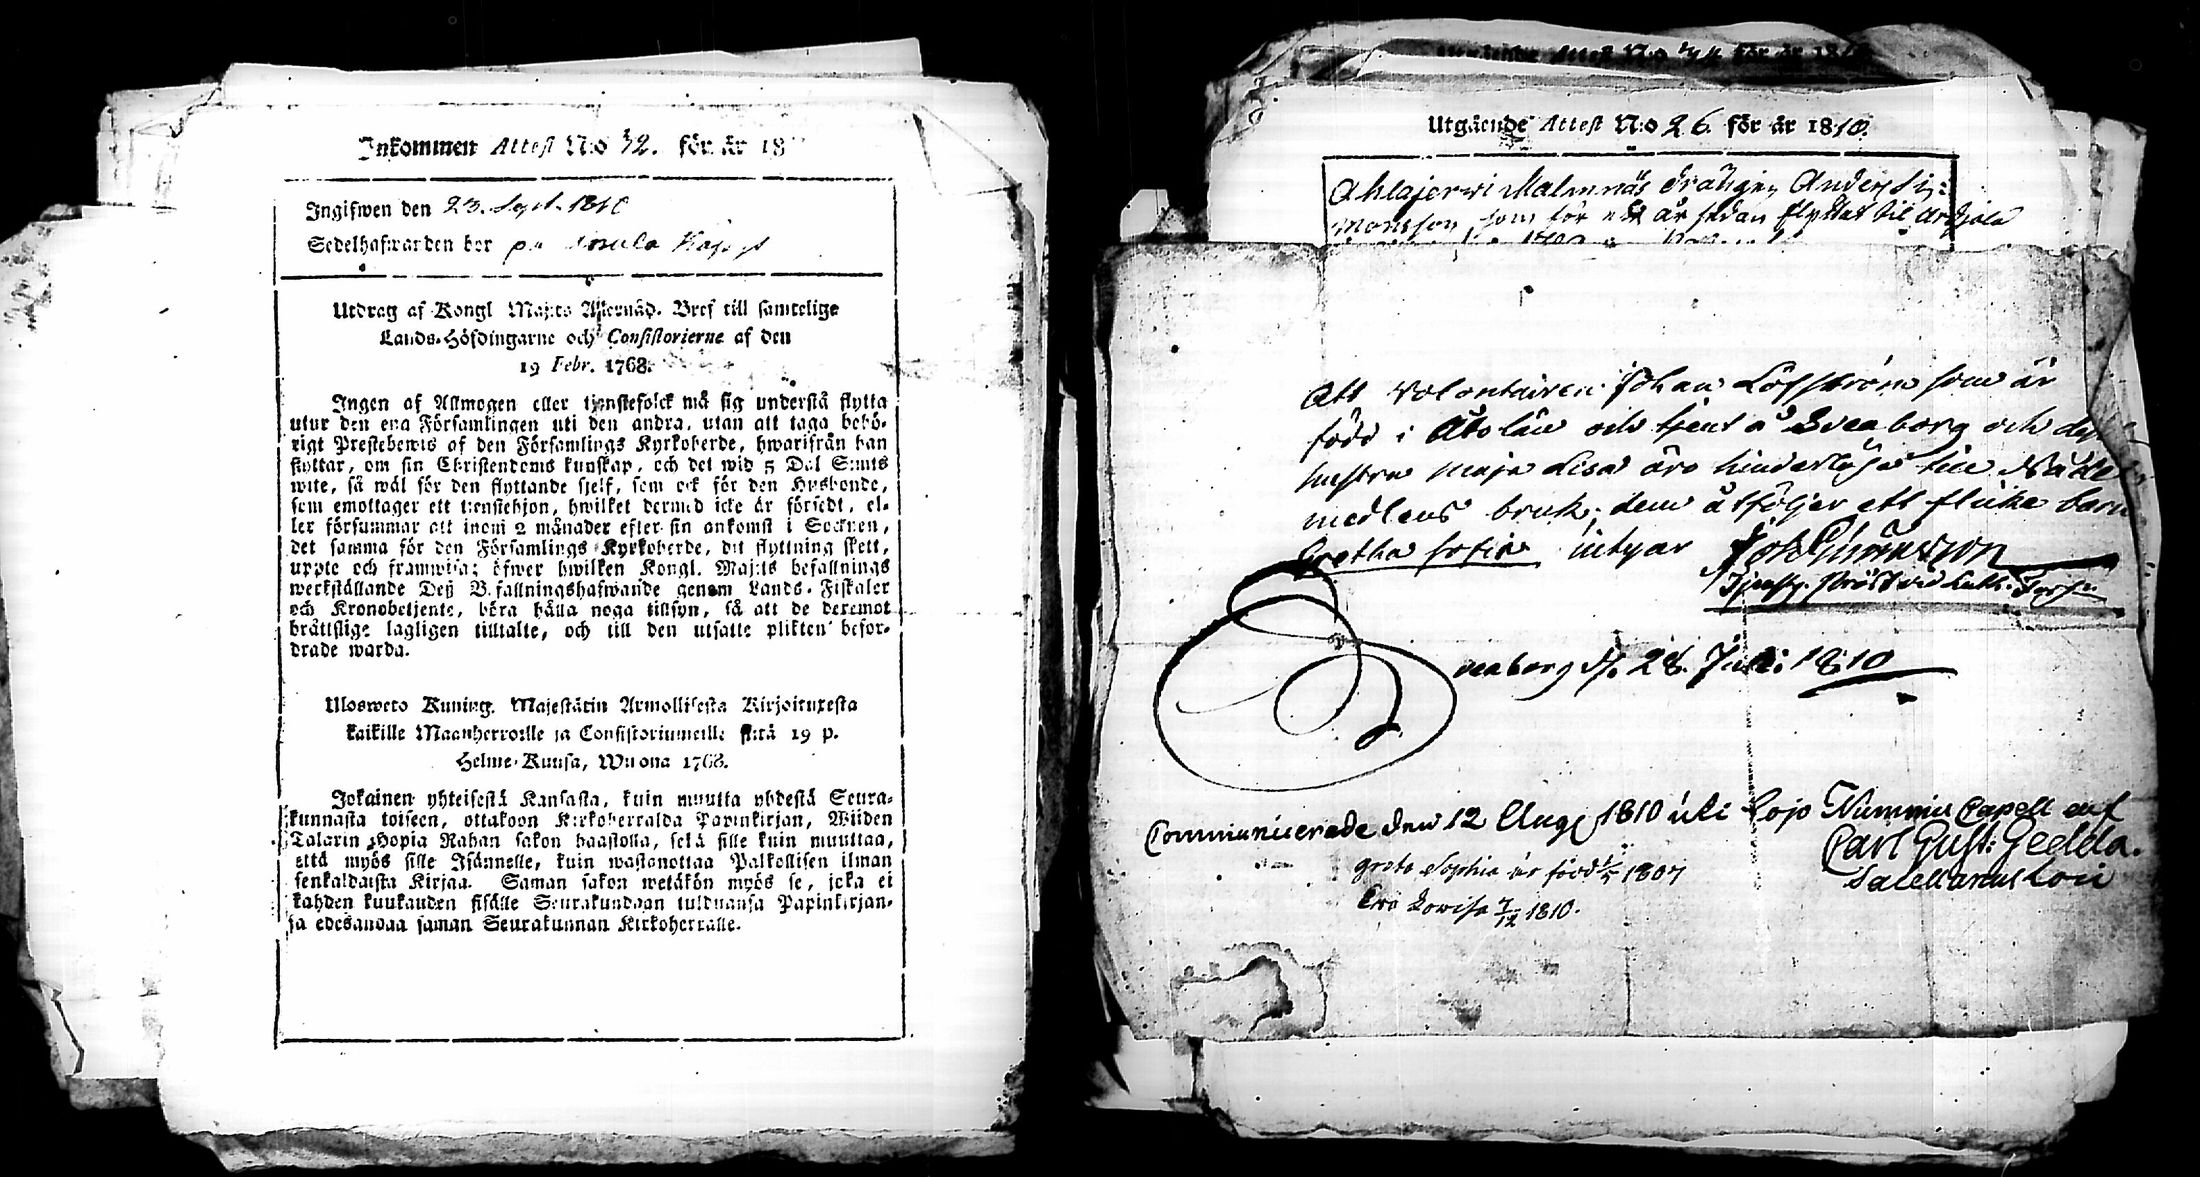 Inkommen Attest N:o 42. för år 18
Ingifwen den 23. Sept. 1810
Sedelhafwarden bor på
Utdrag af Kongl Maj:ts Allernåd. Bref till samtelige
Lands-Höfdingarne och Consistorierne af den
19 Febr. 1768.
Ingen af Allmogen eller tjenstefolck må sig understå flytta
utur den ena Församlingen uti den andra, utan att taga behö-
rigt Prestebewis af den Församlings Kyrkoherde, hwarifrån han
flyttar, om sin Christendoms kunskap, och det wid 5 Dal S:mts
wite, så wäl för den flyttande sjelf, som ock för den Husbonde,
som emottager ett tienstehjon, hwilket dermed icke är försedt, el-
ler försummar att inom 2 månader efter sin ankomst i Socknen,
det samma för den Församlings Kyrkoherde, dit flyttning skett,
uppte och framwisa; öfwer hwilken Kongl. Maj:ts befallnings
werkställande Deß Befallningshafwande genom Lands-Fiskaler
och Kronobetjente, böra hålla noga tillsyn, så att de deremot
bråttslige lagligen tilltalte, och till den utsatte plikten befor-
drade warda.
Ulosweto Kuning. Majestätin Armollisesta Kirjoituxesta
kaikille Maanherroille ja Consistoriumeille siitä 19 p.
Helme-Kuusa, Wuona 1768.
Jokainen yhteisestä Kansasta, kuin muutta yhdestä Seura-
kunnasta toiseen, ottakoon Kirkoherralda Papinkirjan, Wiiden
Talarin Hopia Rahan sakon haastolla, sekä sille kuin muuttaa,
että myös sille Isännelle, kuin wastanottaa Palkollisen ilman
senkaldaista Kirjaa. Saman sakon wetäkön myös se, joka ei
kahden kuukauden sisälle Seurakundaan tulduansa Papinkirjan-
sa edesandaa saman Seurakunnan Kirkoherralle.
Attest N:o för år 18
Utgående Attest N:o 26. för år 1810.
Ahlajerwi Malmnäs drängen Anders
som för ett år sedan flyttat til
Att Volontairen Johan Löfström som är
född i Åbo län och tjent å Sveaborg och
hustru Maja Lisa äro hinderlöse till Nåde
medlens bruk; dem åtföljer ett flicke barn
Gretha Sofia intygar
Sveaborg d. 28. Juli 1810
Communicerade den 12 Aug. 1810 uti Lojo Nummis Capell auf
Carl Gust: Gedda.
Sacellanus Loci
Greta Sophia är född 1807
Eva Lovisa 7/12 1810.